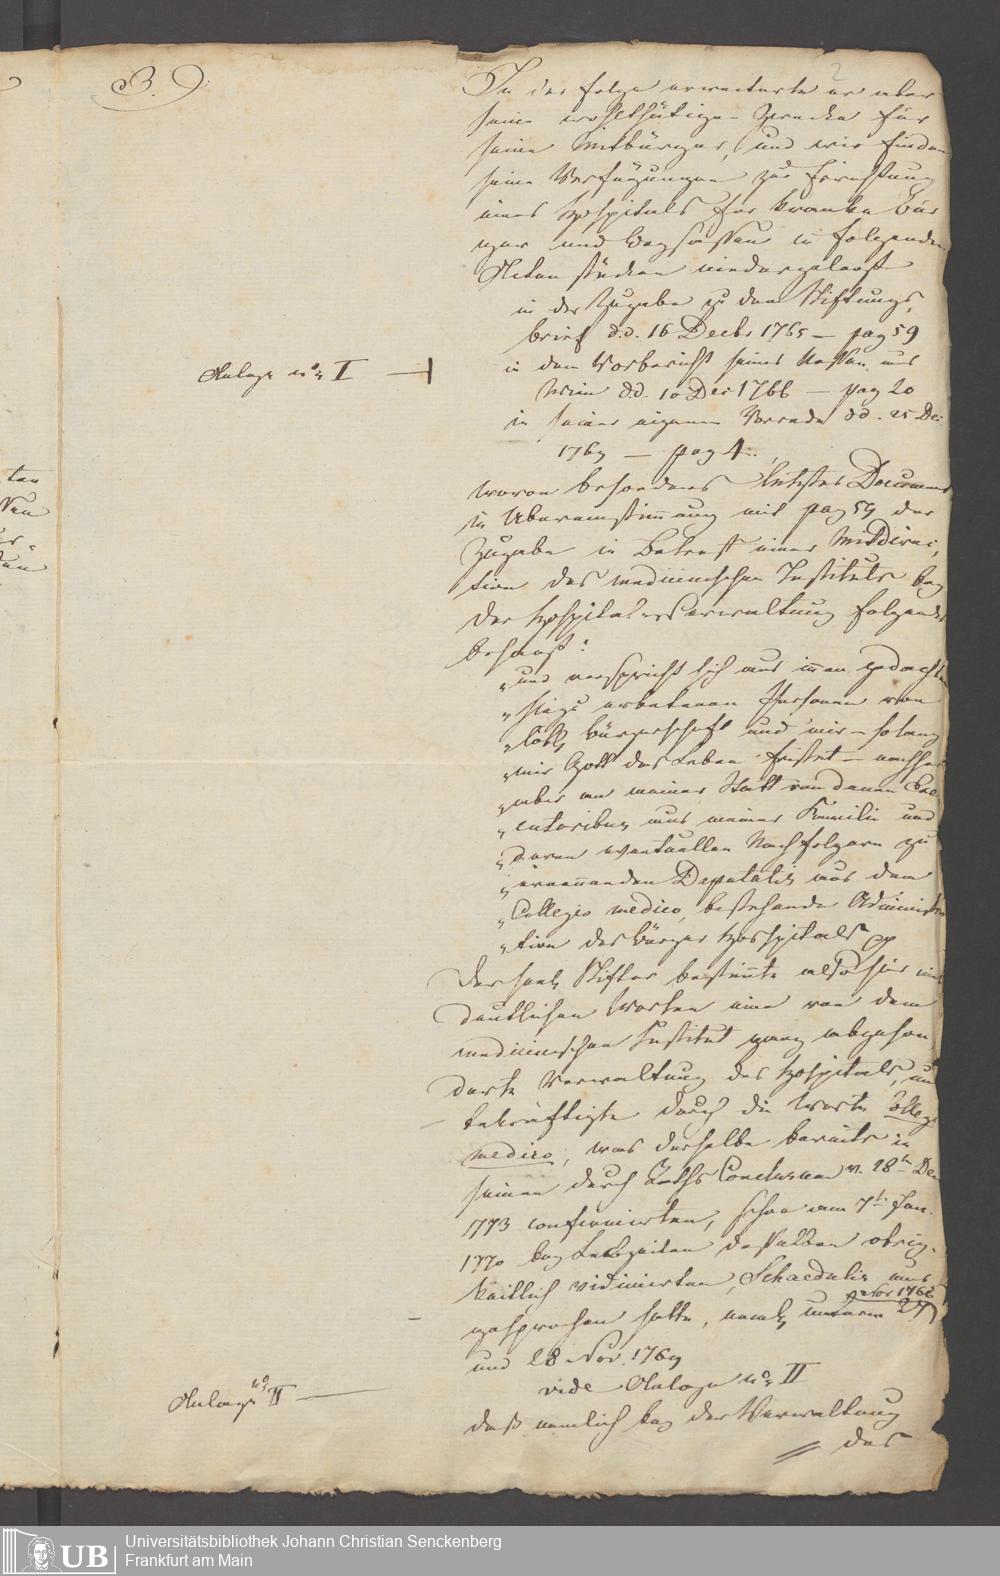 B.
2
In der Folge erweiterte er aber
seine wohlthätigen Zwecke für
seine Mitbürger, und wir finden
seine Verfügungen zur Errichtung
eines Hospitals für kranke Bür
ger und Beysassen in folgenden
Actenstücken niedergelegt
in der Zugabe zu dem Stiftungs,
brief d.d. 16 Decbr 1765 – pag 59
Anlage no I
in dem Vorbericht seines Neffen
d.d. 10 Dec 1766 – pag 20
in seiner eigenen Vorrede dd. 25 Dec
1769 – pag 4.
wovon besonders letztes Document
in Übereinstimmung mit pag 59 der
Zugabe in Betreff einer Mitdirec,
tion des medicinischen Instituts bey
der Hospitals-Verwaltung folgendes
besagt:
„und verspricht sich aus immen gedachten
„hiezu erbetenen Personen von
„löbl Bürgerschaft und mir – so lang
„mir Gott das Leben fristet – nachher
„aber an meiner Statt von denen Exe
„cutoribus aus meiner Familie und
„deren eventuellen Nachfolgern zu
„ernennenden Deputatis aus dem
„Collegio medico, bestehende Administra
„tion des Bürger Hospitals pp
Der seel. Stifter bestimmte also hier mit
deutlichen Worten eine von dem
medicinischen Institut ganz abgeson
derte Verwaltung des Hospitals, und
bekräftigte durch die Worte Colleg
medico, was derselbe bereits in
seinen durch Raths Conclusum v. 28ten Dec
1773 confirmirten, schon am 7ten Jan.
1770 bey Lebzeiten desselben obrig-
keitlich vidimirten, Schaedulis aus
gesprochen hatte, nemlich unterm 27 Nov 1768
und 28 Nov. 1769
vide Anlage no II
Anlage no II
daß nemlich bey der Verwaltung
des
Universitätsbibliothek Johann Christian Senckenberg
Frankfurt am Main
UB